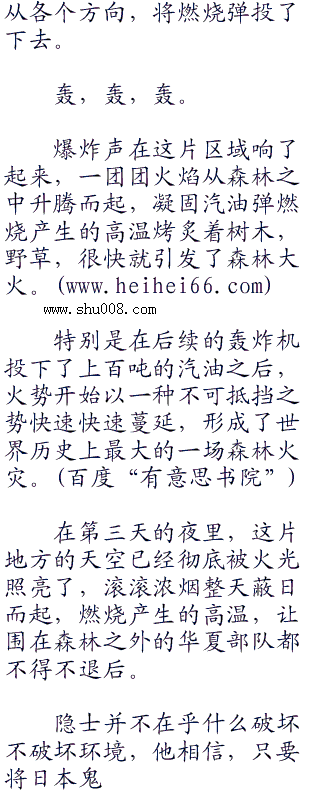 从各个方向，将燃烧弹投了
下去。
轰，轰，轰。
爆炸声在这片区域响了
起来，一团团火焰从森林之
中升腾而起，凝固汽油弹燃
烧产生的高温烤炙着树木，
野草，很快就引发了森林大
火。(www.heihei66.com)
www.shu008.com
特别是在后续的轰炸机
投下了上百吨的汽油之后，
火势开始以一种不可抵挡之
势快速快速蔓延，形成了世
界历史上最大的一场森林火
灾。(百度“有意思书院”)
在第三天的夜里，这片
地方的天空已经彻底被火光
照亮了，滚滚浓烟整天蔽日
而起，燃烧产生的高温，让
围在森林之外的华夏部队都
不得不退后。
隐士并不在乎什么破坏
不破坏环境，他相信，只要
将日本鬼